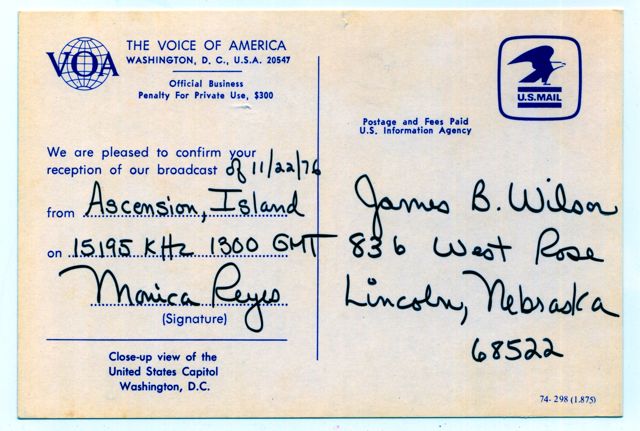 VOA
THE VOICE OF AMERICA
WASHINGTON, D. C., U.S.A. 20547
Official Business
Penalty For Private Use, $300
U.S. MAIL
Postage and Fees Paid
U.S. Information Agency
We are pleased to confirm your
reception of our broadcast of 11/22/76
from Ascension, Island
on 15195 KHz 1300 GMT
Monica Reyes
(Signature)
Close-up view of the
United States Capitol
Washington, D.C.
James B. Wilson
836 West Rose
Lincoln, Nebraska
68522
74- 298 (1.875)